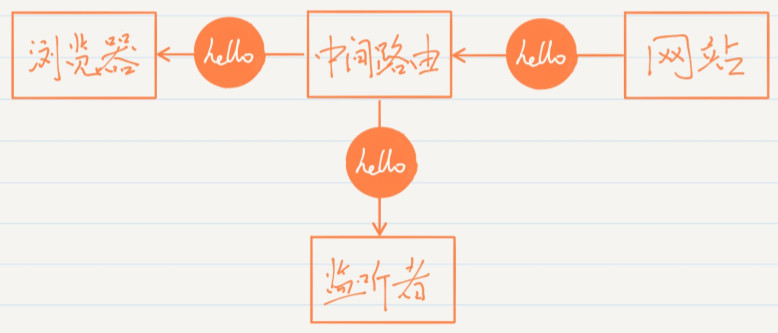 浏览器
hello
中间路由
hello
网站
hello
监听者